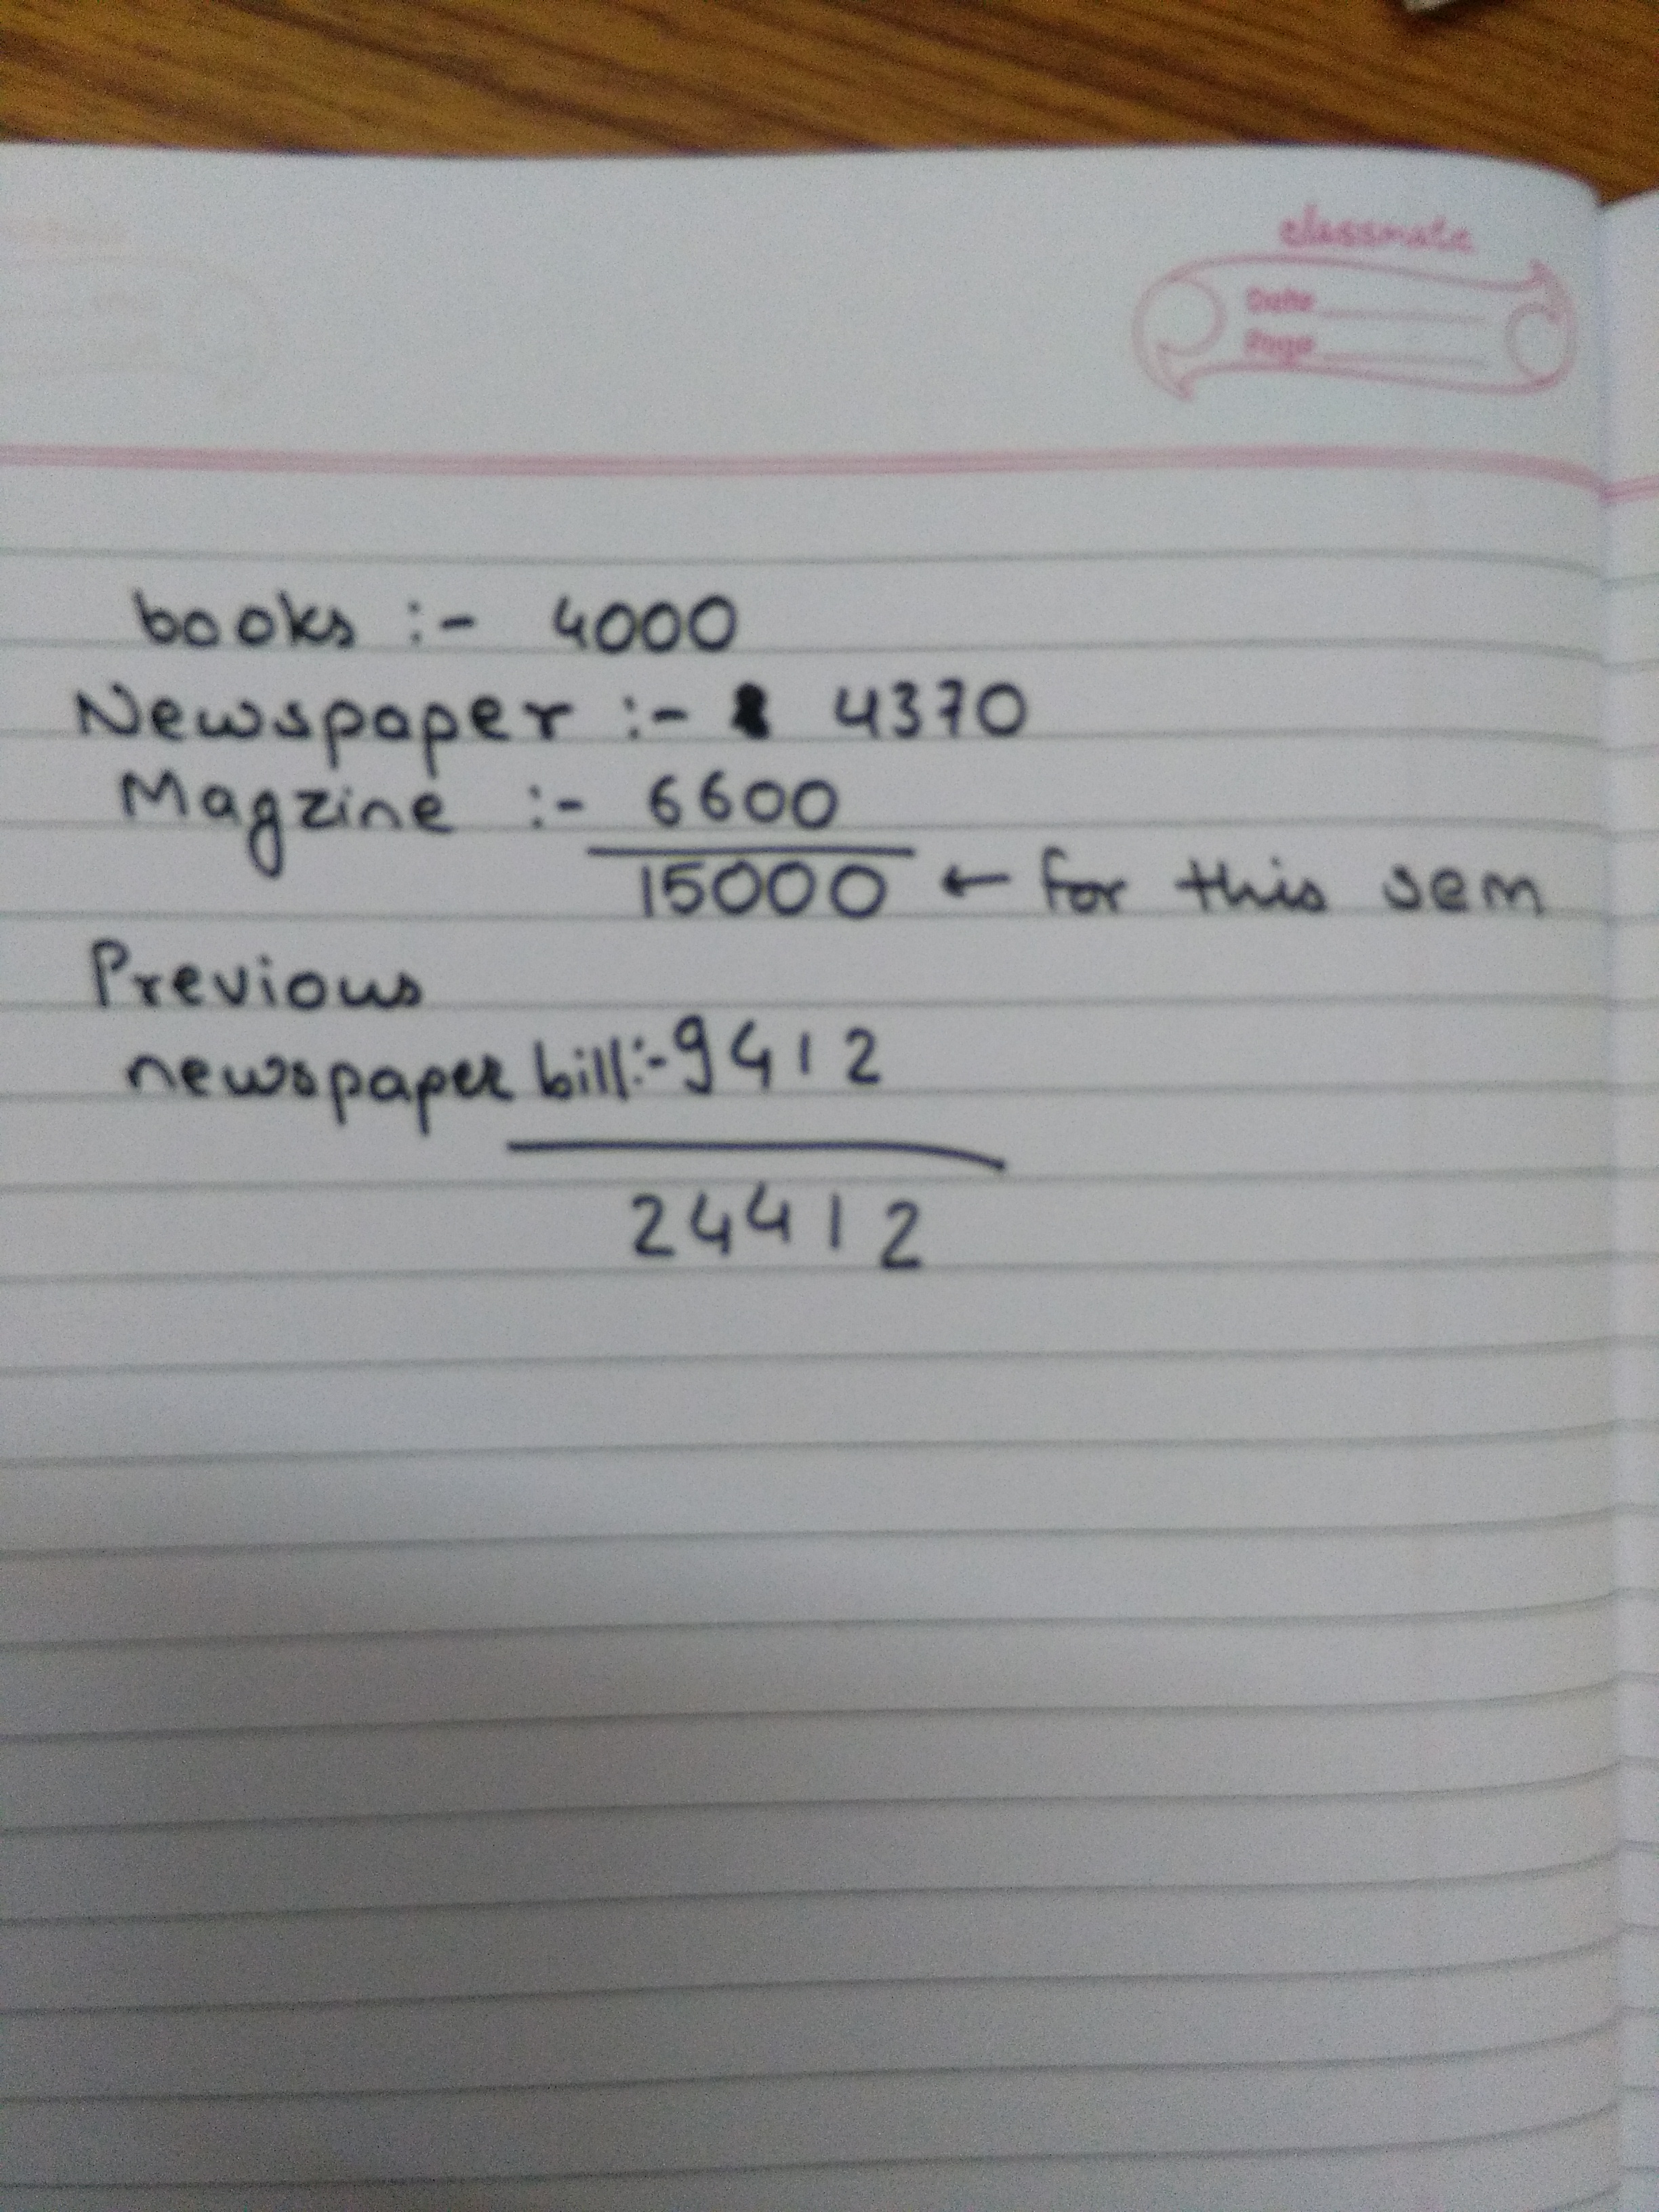 classmate
Date
Page
books :- 4000
Newspaper :- 4370
Magzine :- 6600
15000 ← for this sem
Previous
newspaper bill:- 9412
24412